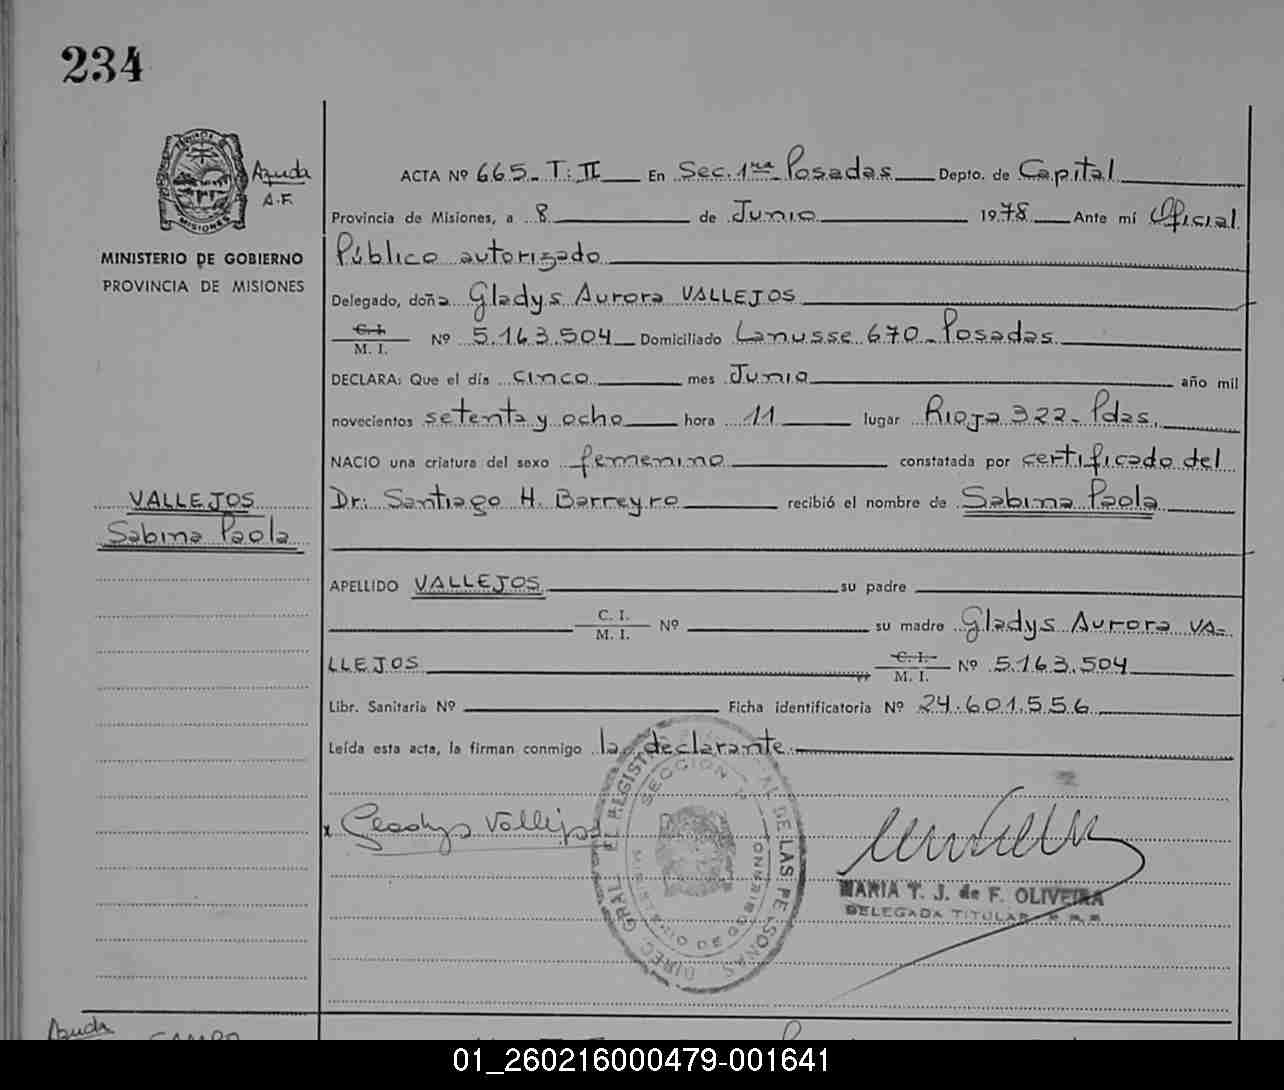 234
Ayuda
A.F.
MISIONES
MINISTERIO DE GOBIERNO
PROVINCIA DE MISIONES
ACTA Nº 665_ T: II En Sec. 1ra Posadas Depto. de Capital
Provincia de Misiones, a 8 de Junio 1978 Ante mí Oficial
Público autorizado
Delegado, doña Gladys Aurora VALLEJOS
C. I.
M. I. Nº 5.163.504 Domiciliado Lanusse 670_ Posadas
DECLARA: Que el día cinco mes Junio año mil
novecientos setenta y ocho hora 11 lugar Rioja 322_ Pdas.
NACIO una criatura del sexo femenino constatada por certificado del
Dr: Santiago H. Barreyro recibió el nombre de Sabina Paola
VALLEJOS
Sabina Paola
APELLIDO VALLEJOS su padre
C. I.
M. I. Nº su madre Gladys Aurora VA-
LLEJOS C. I.
M. I. Nº 5.163.504
Libr. Sanitaria Nº Ficha identificatoria Nº 24.601.556
Leída esta acta, la firman conmigo la declarante
x Gladys Vallejos
MARIA T. J. de F. OLIVEIRA
DELEGADA TITULAR
Ayuda
CAMPO
01_260216000479-001641